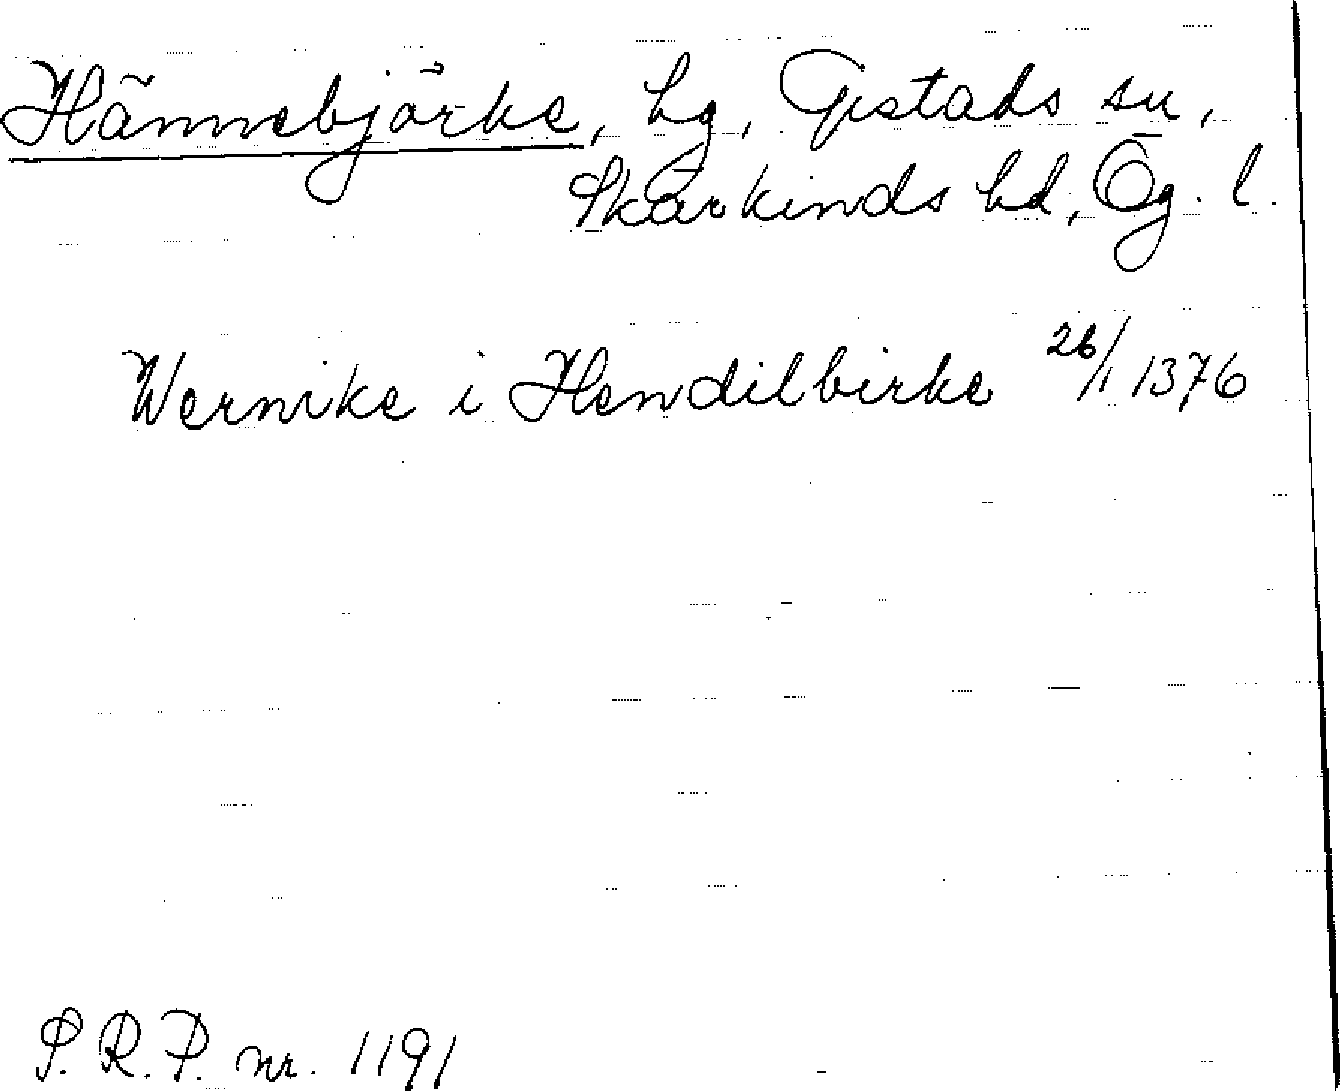 Hännebjörke, hg, Gistads sn,
Skärkinds hd, Ög. l.
Wernike i Hendilbirke 26/1 1376
S. R. P. nr. 1191